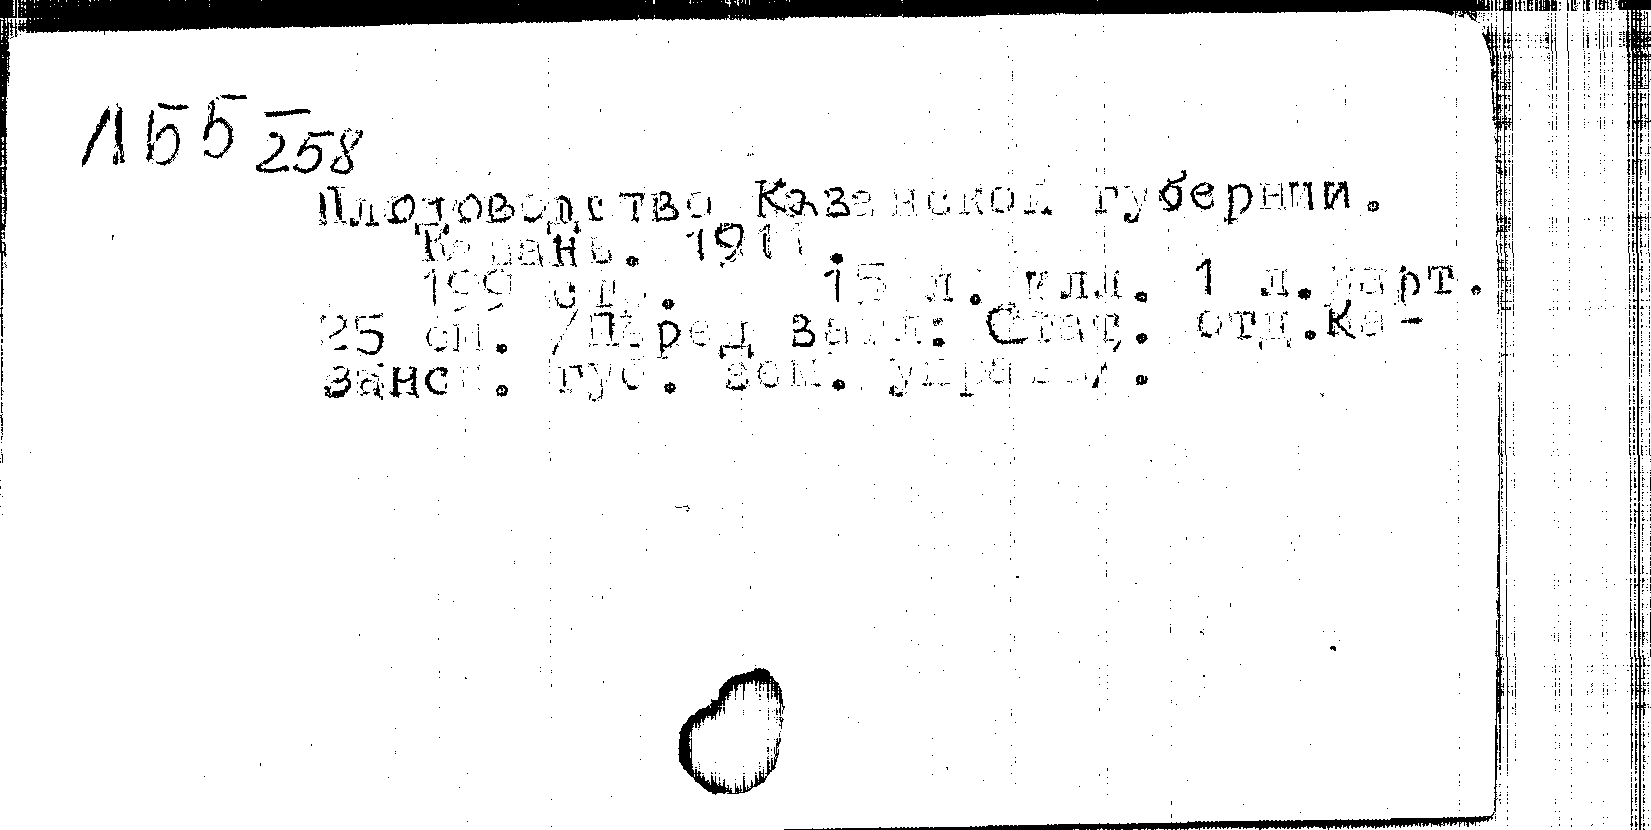 ЛБ Б-258
Плодоводство Казанской губернии.
Казань. 1911.
199 стр. 15 л. илл. 1 л. карт.
25 см. /Перед загл: Стат. отд. Ка-
занск. губ. зем. управы/.